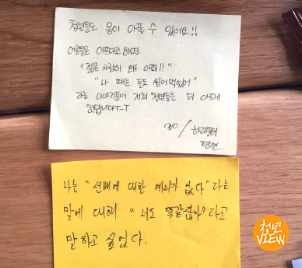 청년들도 몸이 아플 수 있어요!!
어른들은 아프다고 하면
"젊은 사람이 왜 아파!!"
"나 때는 돌도 씹어먹었어"
라는 이야기들이 저희 청년들을 더 아프게
한답니다 T-T
30 /
나는 "선배에 대한 예의가 없다" 라는
말에 대해 "너도 똑같습니다" 라고
말하고 싶었다.
청년
VIEW